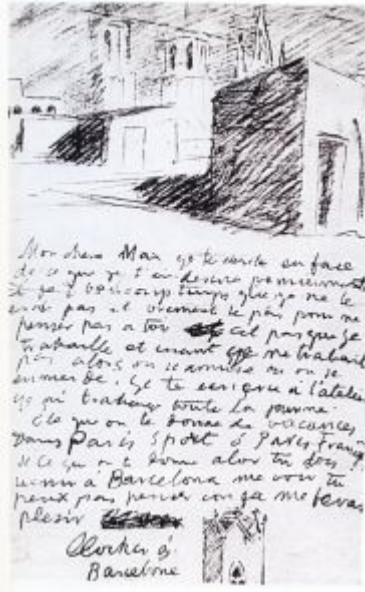 Mon cher Max ge te ecrite en face
de ce que ge t'en desine
ge beaucoup temps que ge ne te
ecrit pas et vreiment le pas pour ne
penser pas a toi cet parsque ge
trabaille et cuant ge ne trabaill
pas alors on s'amuse ou on se
emmerde. ge te ecrig a l'atelier
ge ai trabaille toute la journe.
Ce que on te donne de vacances
dans Paris Sport o Paris France
si ce que on te donne alor tu dois
venir a Barcelona me voir tu
peux pas penser con ça me feras
plesir
Clocher ó
Barcelone